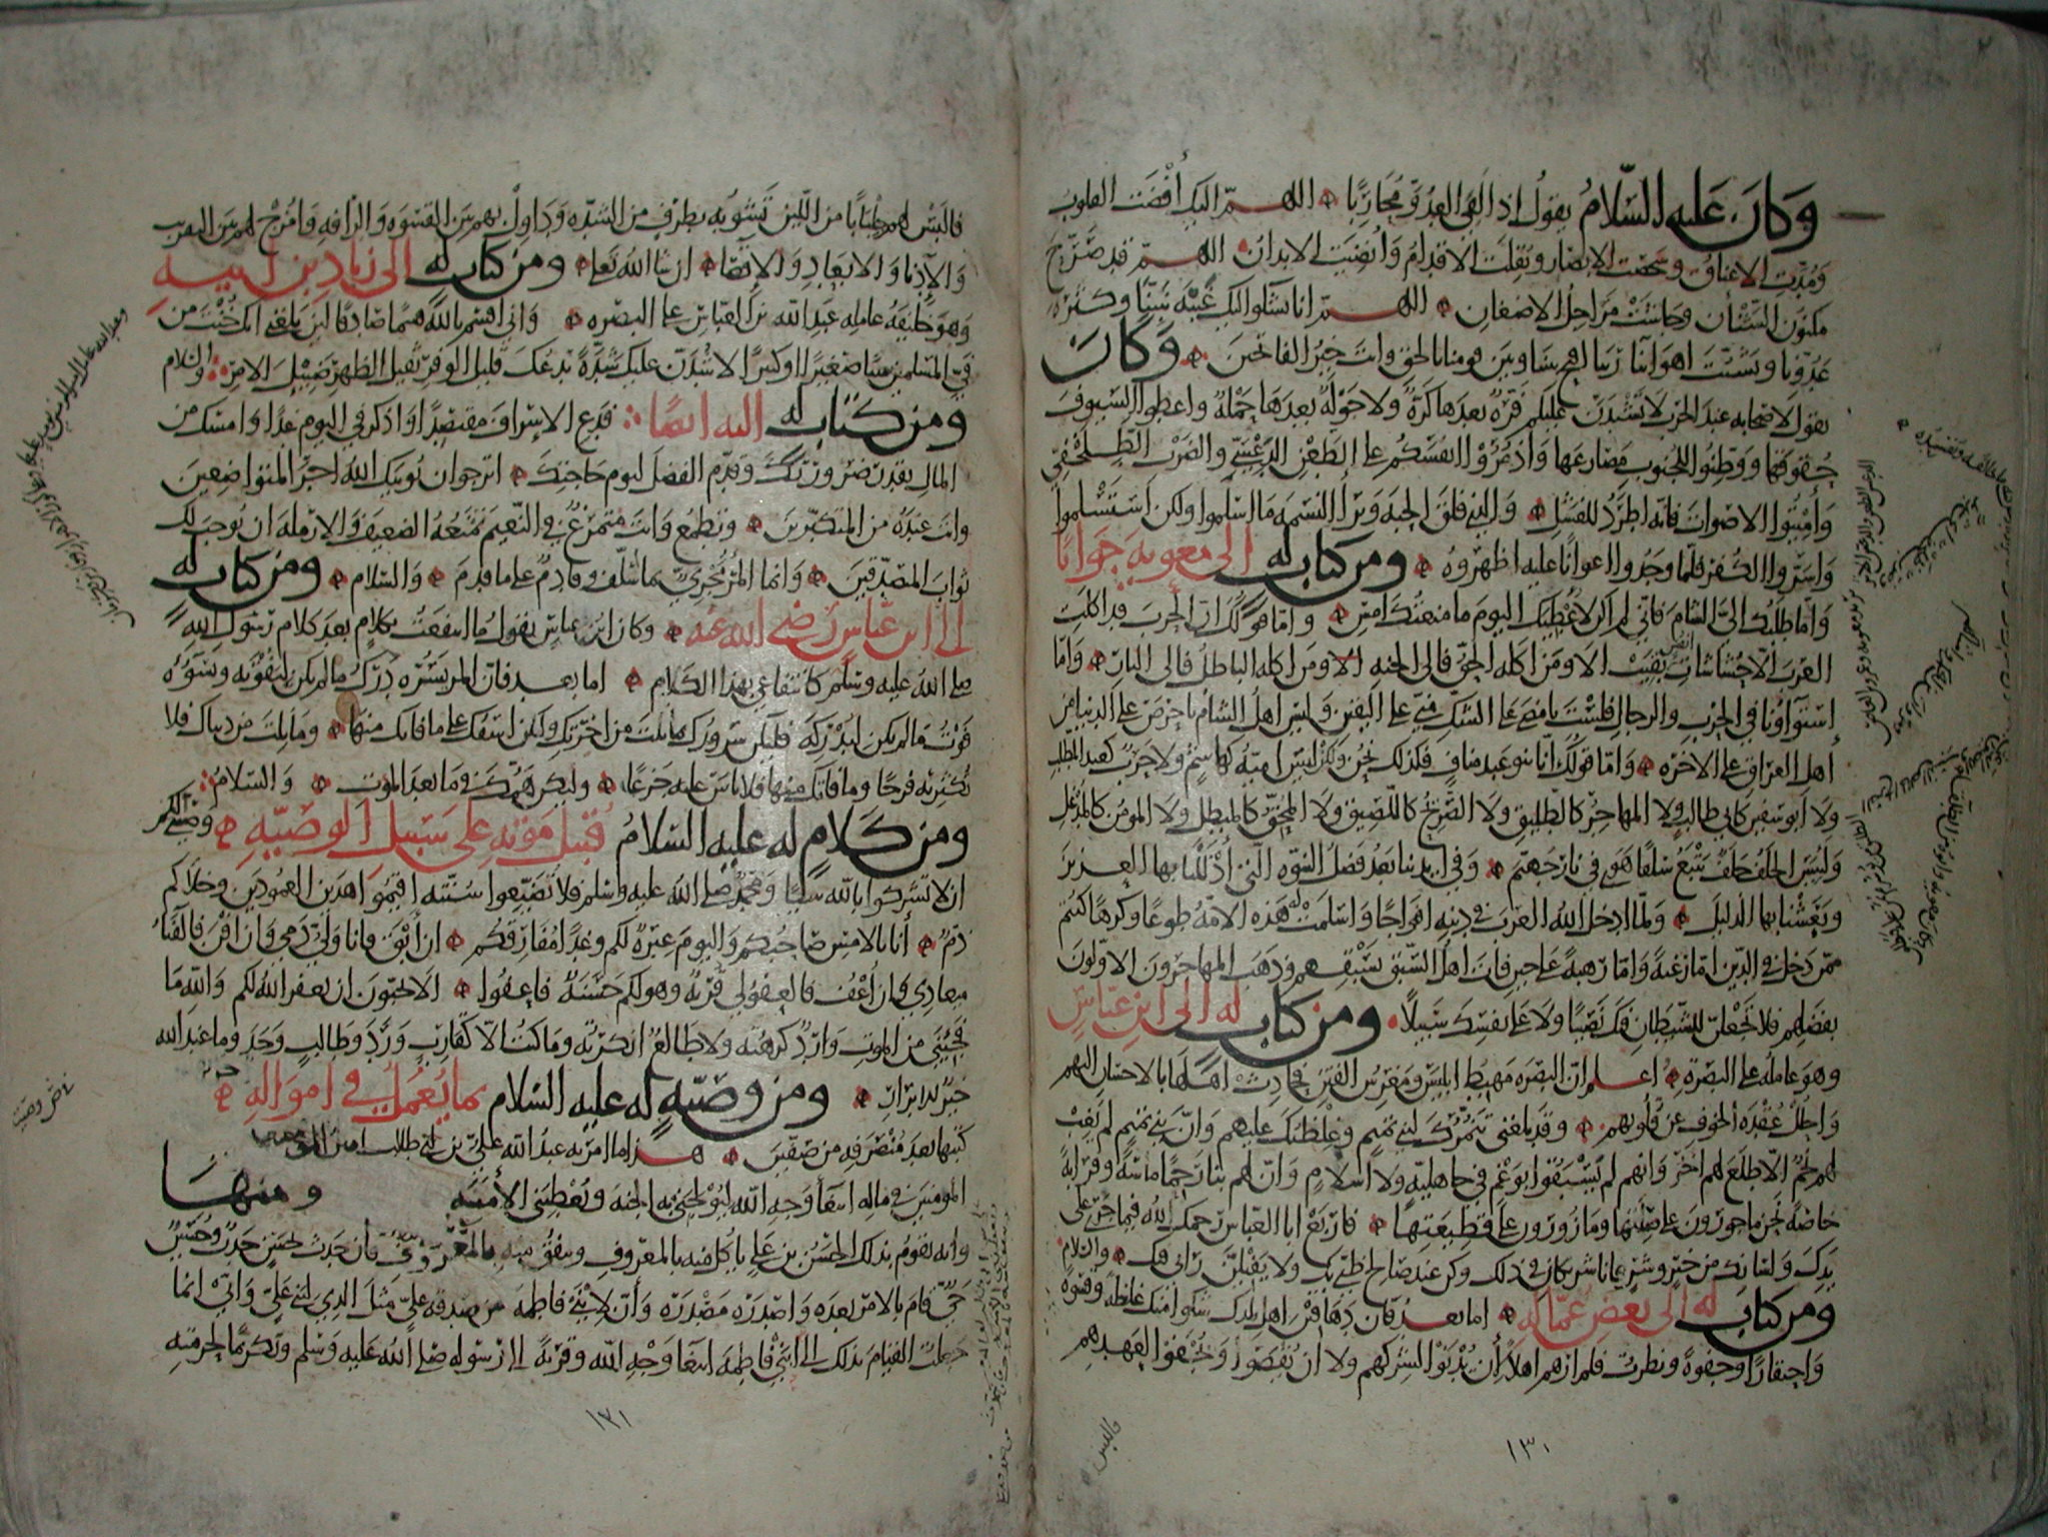 وَكانَ عَليه السّلامُ يقولُ اذا لقى العدُوّ مُحَاربًا اللهـمّ اليك أفْضَت القلوب
وَمُدّت الاعناقُ وشخصت الابصار ونُقِلَت الاقدامُ وَأنضِيَت الابدانُ اللهـمّ قد صَرّح
مكنون الشّنَآن وجاشَتْ مَرَاجِلُ الاضغانِ اللهـمّ انا نشكوا اليك غَيْبَة نبيّنا وكثرة
عَدُوّنا وتشتّت اهوائنا رَبّنا افتح بيننا وبين قومنا بالحق وانت خيرُ الفاتحينَ وَكَانَ
يقول لاصحابه عند الحرب لا تشتدّنّ عليكم فَرّةٌ بعدها كرّةٌ ولا جَوْلةٌ بعدَها حَمْلةٌ واعطوا السّيوفَ
حُقوقها ووَطّنُوا للجُنوب مصارعها وَاذْمُرُوا انفسَكم على الطعْنِ الدَّعْسِيّ والضرْب الطِّلَحْفِيّ
وَأمِيتُوا الاصْوات فانّه اطرَدُ للفشل والّذي فلقَ الحبّة وَبَرَأ النّسَمة مَا اسْلموا ولكن اسْتَسْلموا
وَاسَرُّوا الكُفْر فلمّا وَجَدُوا اعوانًا عليه اظهَروهُ ومن كتاب له الى معوية جَوابًا
وَامّا طَلَبُك اليّ الشامَ فاني لم اكن لاعْطيَك اليومَ ما منعتُكَ امسِ وامّا قولُكَ انّ الحربَ قد اكلت
العرَبَ الّا حُشاشات انفس بقيَتْ الا ومَن اكله الحقّ فالى الجنه الا ومن اكله الباطلُ فالى النار وَامّا
اسْتواؤنا في الحرْب والرجالِ فلسْتَ بامضَى على الشكّ منّي على اليقين وَليس اهلُ الشام باحرصَ على الدنيا من
أهل العراق على الاخرة وامّا قولُكَ انّا بنو عبد منافٍ فكذلك نحنُ ولكن ليس اميّةُ كهاشمٍ ولا حربٌ كعبد المطلب
ولا ابو سفين كابي طالب ولا المهاجرُ كالطليق ولا الصّريحُ كاللّصيق ولا المُحقّ كالمبطِل ولا المؤمنُ كالمُدغِل
وَلبئسَ الخلفُ خلَفٌ يتْبَعُ سَلفًا هوى في نار جهنّم وفي ايدينا بعدُ فضلُ النبوّه الّتي أذْلَلْنا بها العزيز
ونَعَشْنا بها الذليلَ ولمّا ادخل اللهُ العرَب في دينه افواجًا وَاسْلمَتْ له هذه الامّة طوعًا وكرهًا كنتم
ممّن دخل في الدين امّا رَغبةً وَامّا رَهبةً على حين فازَ اهلُ السّبق بسَبْقهم وذهبَ المهاجرون الاوّلونَ
بفضلهم فلا تجعلنّ للشيطان فيك نصيبًا ولا على نفسِك سبيلًا ومن كتاب له الى ابن عبّاس
وهو عامله على البصره اعـلم انّ البصره مهبطُ ابليسَ ومَغرِسُ الفتن فحادِثْ اهلَها بالاحسان اليهم
وَاحلُلْ عُقدَة الخوف عن قُلوبهم وقد بلغني تنَمُّرُك لبني تميم وغِلظتُكَ عليهم وَانّ بني تميم لم يَغِبْ
لهم نجمٌ الّا طلعَ لهم اخَرُ وَانهم لم يُسْبَقوا بوَغْمٍ في جاهليّه ولا اسلامٍ وَانّ لهم بنا رحمًا ماسّةً وقرابةً
خاصّةً نحن ماجورون على صِلتها وما زورُون على قطيعتها فارْبَعْ ابا العباس رحمك الله فيما جرى على
يدك ولسانك من خيرٍ وشرٍّ فانا شريكان في ذلك وكن عند صالح ظنّي بك ولا يَفيلَنّ رائي فيك والسّلام
ومن كتاب له الى بعض عمّاله امّا بعـد فانّ دَهاقين اهل بلدك شكوا منك غلظةً وقسوةً
وَاحتقارًا وجفوةً ونظرتُ فلم ارَهم اهلًا لأن يُدْنَوْا لشركهم ولا ان يُقصَوا ويُجْفَوا لعهدهم
فالبس
١٣٠
فالبَسْ لهم جلبَابًا من اللّين تَشوبُه بطَرَفٍ من الشدّه وَدَاوِلْ لهم بين القسْوَه وَالرّافه وَامزُجْ لهم بين التقريب
وَالإدْناء والابعادِ وَالإقصَاء ان شاء اللهُ تعالى ومن كتاب له الى زياد بن ابيه
وهو خليفة عامله عبد الله بن العباس على البصره وانّي اقسم بالله قسمًا صادقًا لئن بلغني انك خُنْتَ من
فَيْ المسلمين شيئًا صَغيرًا او كبيرًا لاشُدّنّ عليك شدّةً تدعُكَ قليل الوفر ثقيل الظهر ضئيلَ الامر والسّلام
ومن كتاب له اليه ايضًا فدَعِ الاسرافَ مقتصدًا وَاذكر في اليوم غدًا وَامسك من
المال بقدر ضرورتك وقدِّم الفضلَ ليوم حاجتِكَ اترجوا ان يُؤتيك اللهُ اجرَ المتواضعينَ
وانت عندَهُ من المتكبّرينَ وتطمعُ وانت متمرّغٌ في النّعيم تمنَعُهُ الضعيفَ والارملة ان يُوجب لك
ثوابَ المتصدّقينَ وَانما المرْءُ مجزيّ بما سلّف وقادِمٌ على ما قدّمَ والسّلام ومن كتاب له
الى ابن عبّاس رضى الله عنه وكان ابن عباس يقولُ ما انتفعتُ بكلامٍ بعد كلام رَسُول الله
صلى اللهُ عليه وسلّم كانتفاعي بهذا الكلام اما بعـد فانّ المرء يَسُرُّه دَرْكُ ما لم يكن ليفوتَه ويسوؤُه
فَوْتُ ما لم يكن ليُدْركَه فليكن سُرورُك بما نلتَ من اخرتِك وليكن اسفُك على ما فاتك منها وما نِلتَ من دنياك فلا
تُكثِر به فرحًا وما فاتك منها فلا تاسَ عليه جَزعًا وليكن همُّكَ في ما بعدَ الموت وَالسّلامُ
ومن كَلامٍ له عليه السّلامُ قُبَيلَ مَوته على سَبيل الوصيّهِ وصيّتي لكم
ان لا تشركوا بالله شيئًا وَمحمّدٌ صلى الله عليه وسلم فلا تُضَيّعوا سُنّته اقيمُوا هذين العمودَين وخلاكم
ذمٌّ أنا بالامس صَاحبُكم وَاليومَ عِبْرةٌ لكم وغدًا مُفارقكم ان أبْقَ فانا وليّ دَمي وَان افْنَ فالفَنَاءُ
ميعادي وان اعْفُ فالعَفْوُ لي قُرْبةٌ وهو لكم حَسَنَةٌ فاعفُوا الا تحبّونَ ان يغفر اللهُ لكم وَاللهِ مَا
فجِئَني من الموت وَارِدٌ كرهتُه ولا طالعٌ انكرتُه وما كنتُ الّا كقاربٍ وَرَدَ وطالبٍ وَجَدَ وما عند الله
خيرٌ للابرَارِ ومن وَصيّهٍ له عليه السّلام بما يُعمَلُ في اموَالهِ
كتبها بعد مُنصَرَفِه من صفّين هـذا ما امر به عبدُ الله عليُّ بن ابي طالب امير
المومنين في ماله ابتغاءَ وَجه الله ليُولجني به الجنة ويُعْطيَني الأمَنَة ومنها
وانه يقوُم بذلك الحسَنُ بن عَليٍ ياكل منه بالمعروفِ وينفقُ منه بالمعْرُوف فان حَدَث بحسَنٍ حَدَثٌ وحُسَيْنٌ
حيٌّ قامَ بالامْر بعدَه وَاصْدَرَه مَصْدَرَه وَأنّ لابْنَيْ فاطِمةَ من صدقة عليّ مثلَ الذي لبني عليّ وَانّي انّما
جعلتُ القيامَ بذلك الى ابنَيْ فاطمةَ ابتغاءَ وَجْهِ الله وقربةً الى رسوله صلى اللهُ عَليه وسَلم وتكريمًا لحُرمته
١٣١